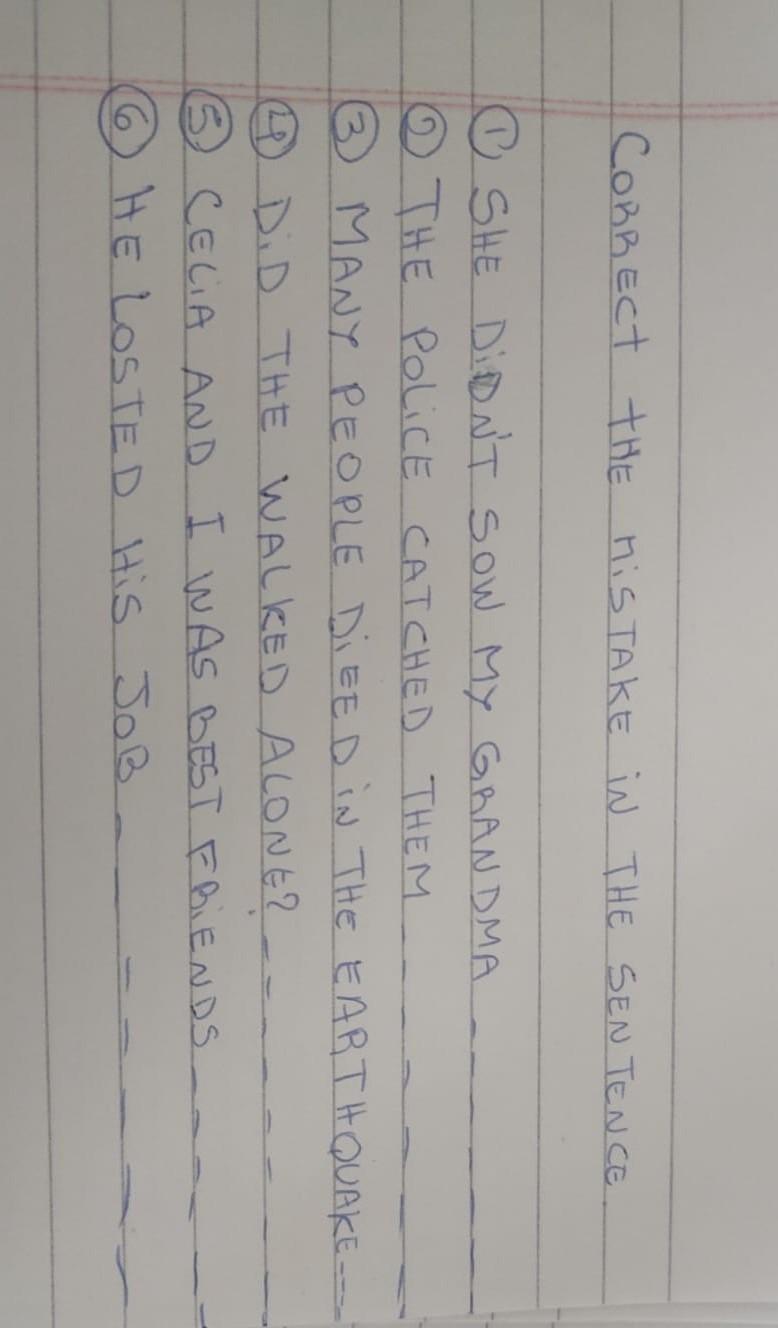 CORRECT THE MISTAKE IN THE SENTENCE
① SHE DIDN'T SOW MY GRANDMA
② THE POLICE CATCHED THEM
③ MANY PEOPLE DIEED IN THE EARTHQUAKE
④ DID THE WALKED ALONE?
⑤ CELIA AND I WAS BEST FRIENDS
⑥ HE LOSTED HIS JOB